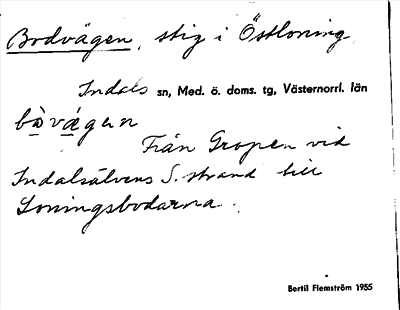 Bodvägen, stig i Östloning
Indals sn, Med. ö. doms. tg, Västernorrl. län
bòvǽgen
Från Gropen vid
Indalsälvens S. strand till
Loningsbodarna.
Bertil Flemström 1955